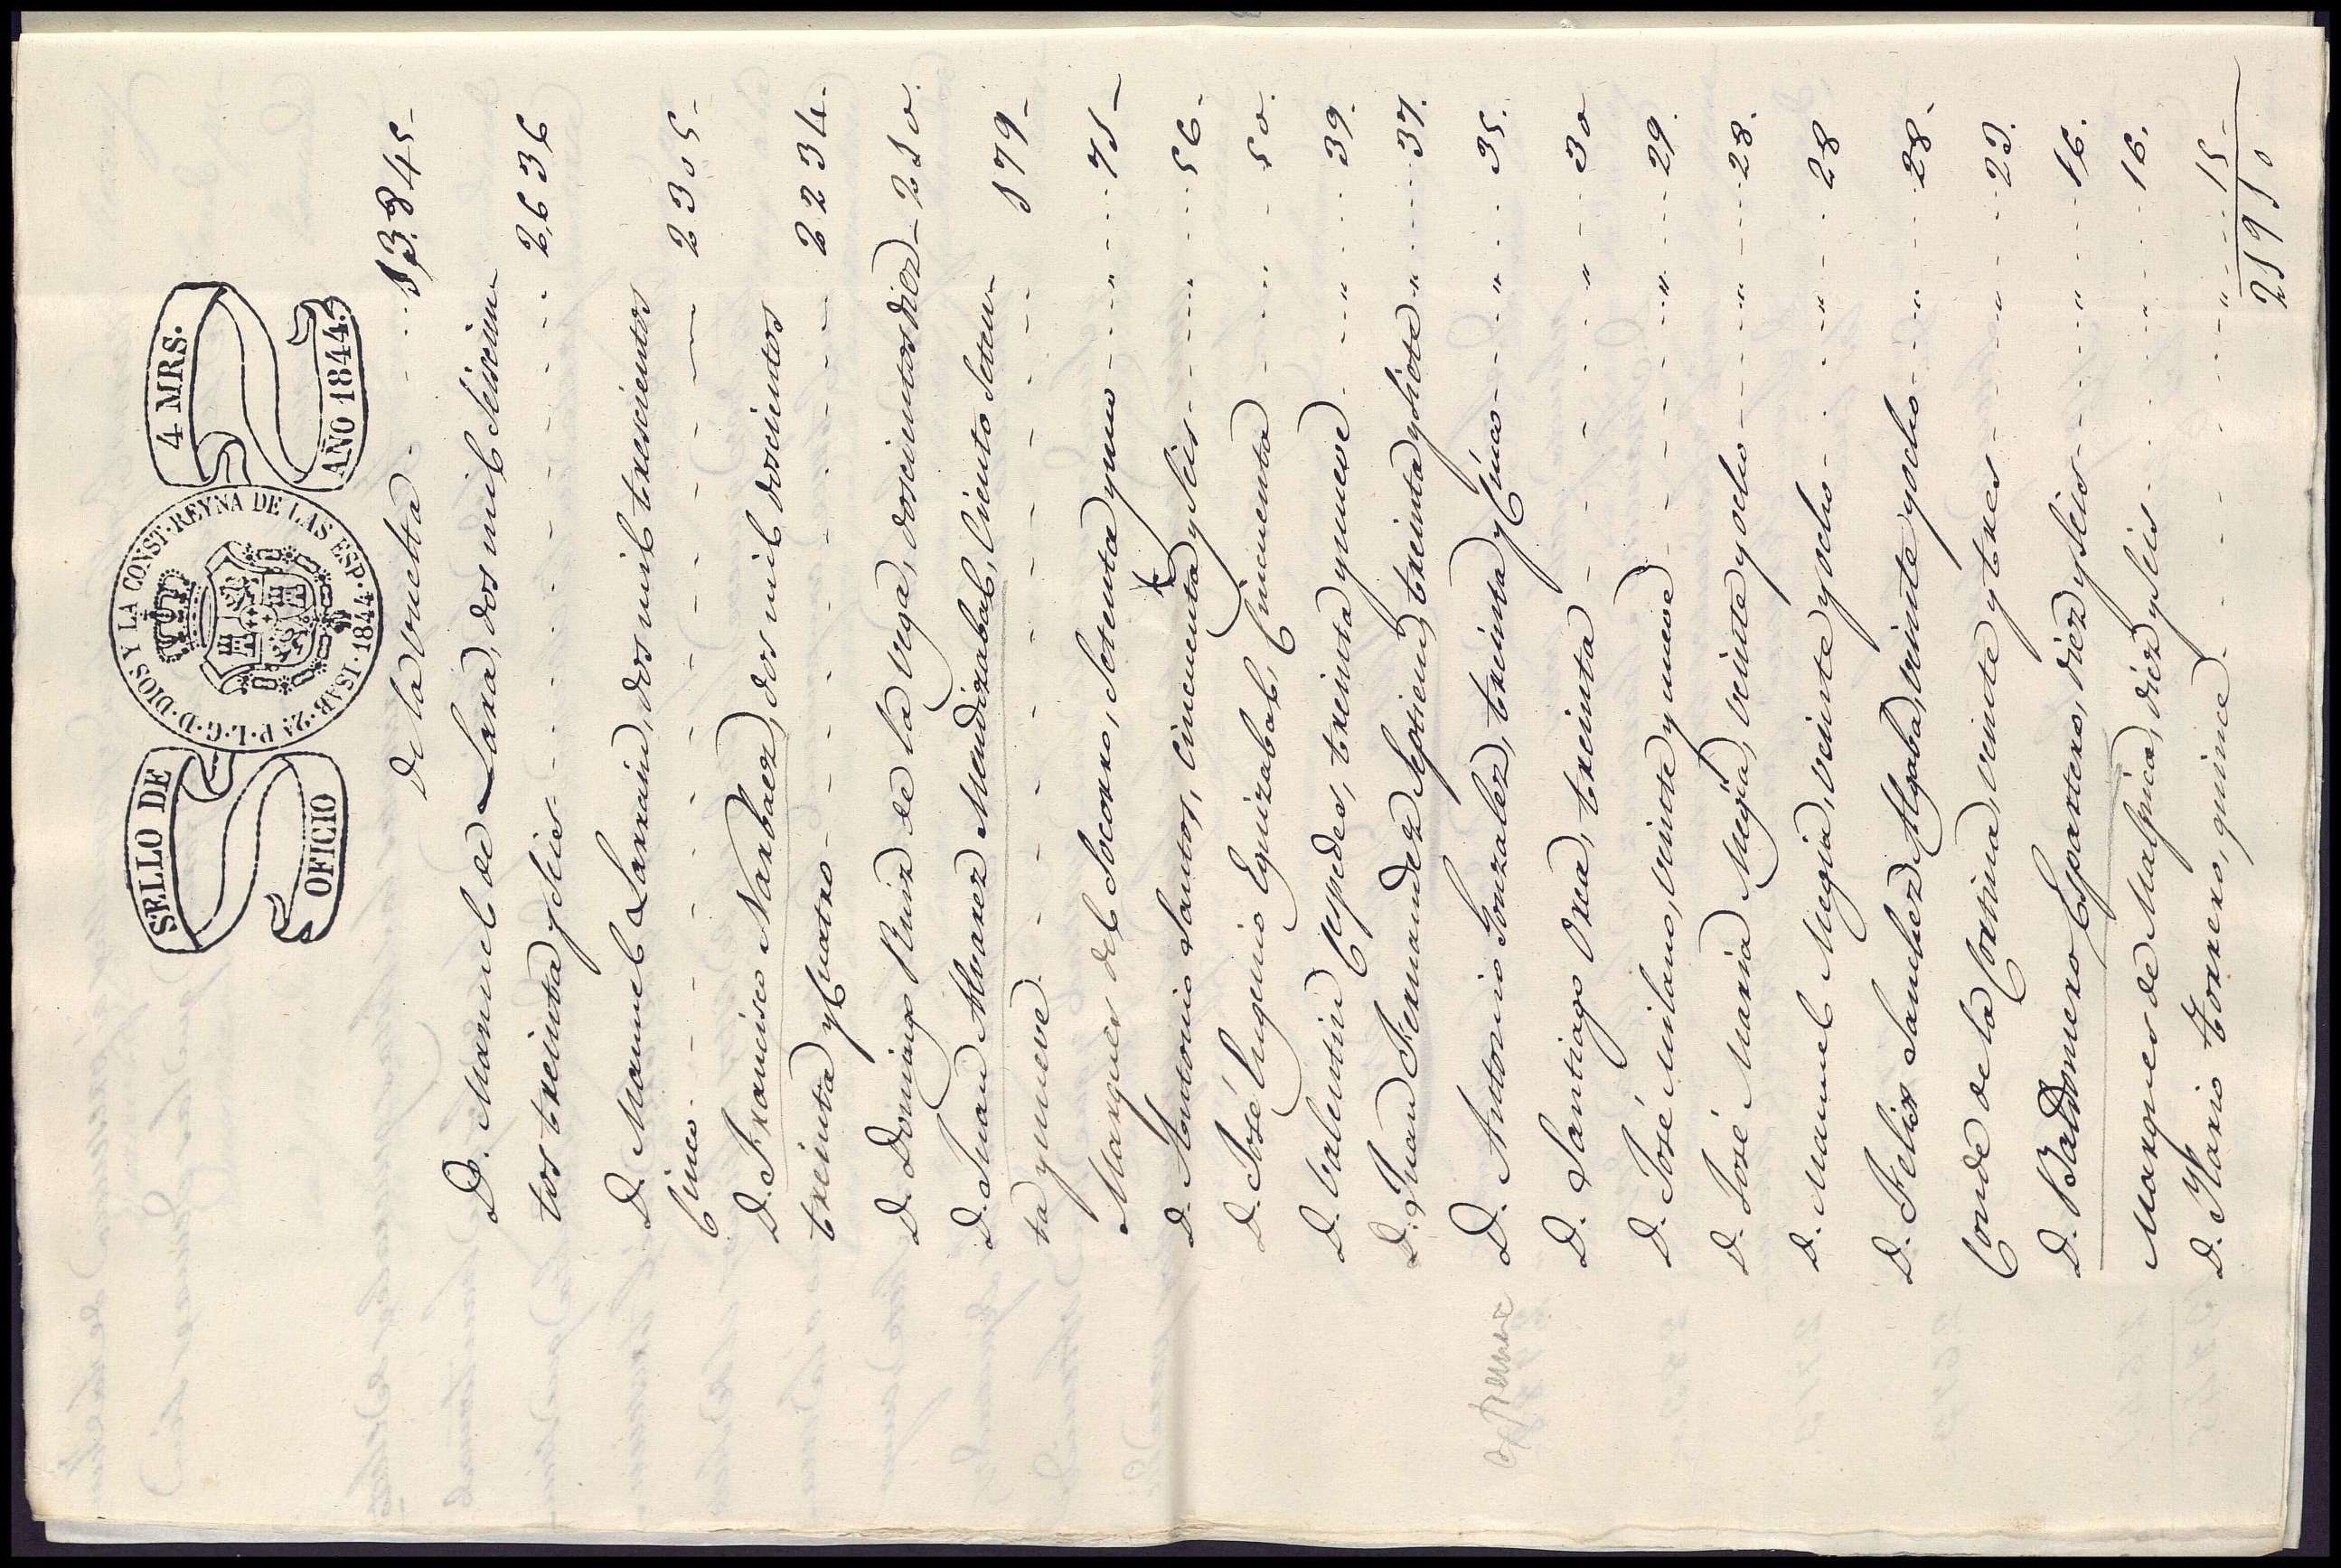 SELLO DE OFICIO
ISAB. 2ª P. L. G. D. DIOS Y LA CONST. REYNA DE LAS ESP. 1844
4 MRS.
AÑO 1844.
De la vuelta . . . . 13,845-
D. Manuel de Lara, dos mil Seiscien
tos treinta y Seis - - - - - - - 2,636
D. Manuel Larrain, dos mil trescientos
Cinco - - - - - - - - - 2305-
D. Francisco Narbaez, dos mil doscientos
treinta y Cuatro - - - - - - - 2234-
D. Domingo Ruiz de la Vega, doscientos diez - 210.
D. Juan Alvarez Mendizabal, Ciento Seten-
ta y nueve - - - - - - - - 179-
Marques del Socorro, Setenta y uno - - - " - - - 71-
D. Antonio Santos, Cincuenta y Seis - - - - - - 56-
D. José Eugenio Eguizabal, Cincuenta - - - - - 50.
D. Valentin Cespedes, treinta y nueve - - - " - - - 39.
D. Juan Fernandez Septien, treinta y Siete - " - - - 37.
D. Antonio Gonzalez, treinta y Cinco - - - " - - - 35.
D. Santiago Orea, treinta - - - - - " - - - 30
D. José Milano, veinte y nueve - - - - - " - - - 29.
D. José Maria Mugia, veinte y ocho - - - - " - - - 28.
D. Manuel Megia, veinte y ocho - - - - " - - - 28
D. Felix Sanchez Algaba, veinte y ocho - - - " - - - 28-
Conde de la Cortina, veinte y tres - - - - " - - - 23.
D. Baldomero Espartero, diez y Seis - - - - " - - - 16.
Marques de Malpica, diez y Seis - - - - " - - - 16.
D. Ylario Torrero, quince - - - - - - " - - - 15-
21910